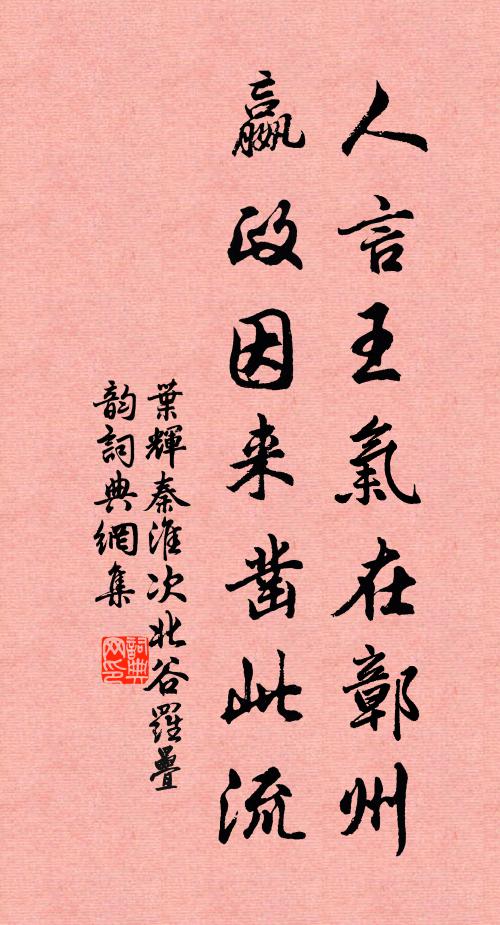 人言王氣在鄣州
嬴政因来凿此流
葉輝秦淮次北谷羅疊
韵詞典網集
詞典网印